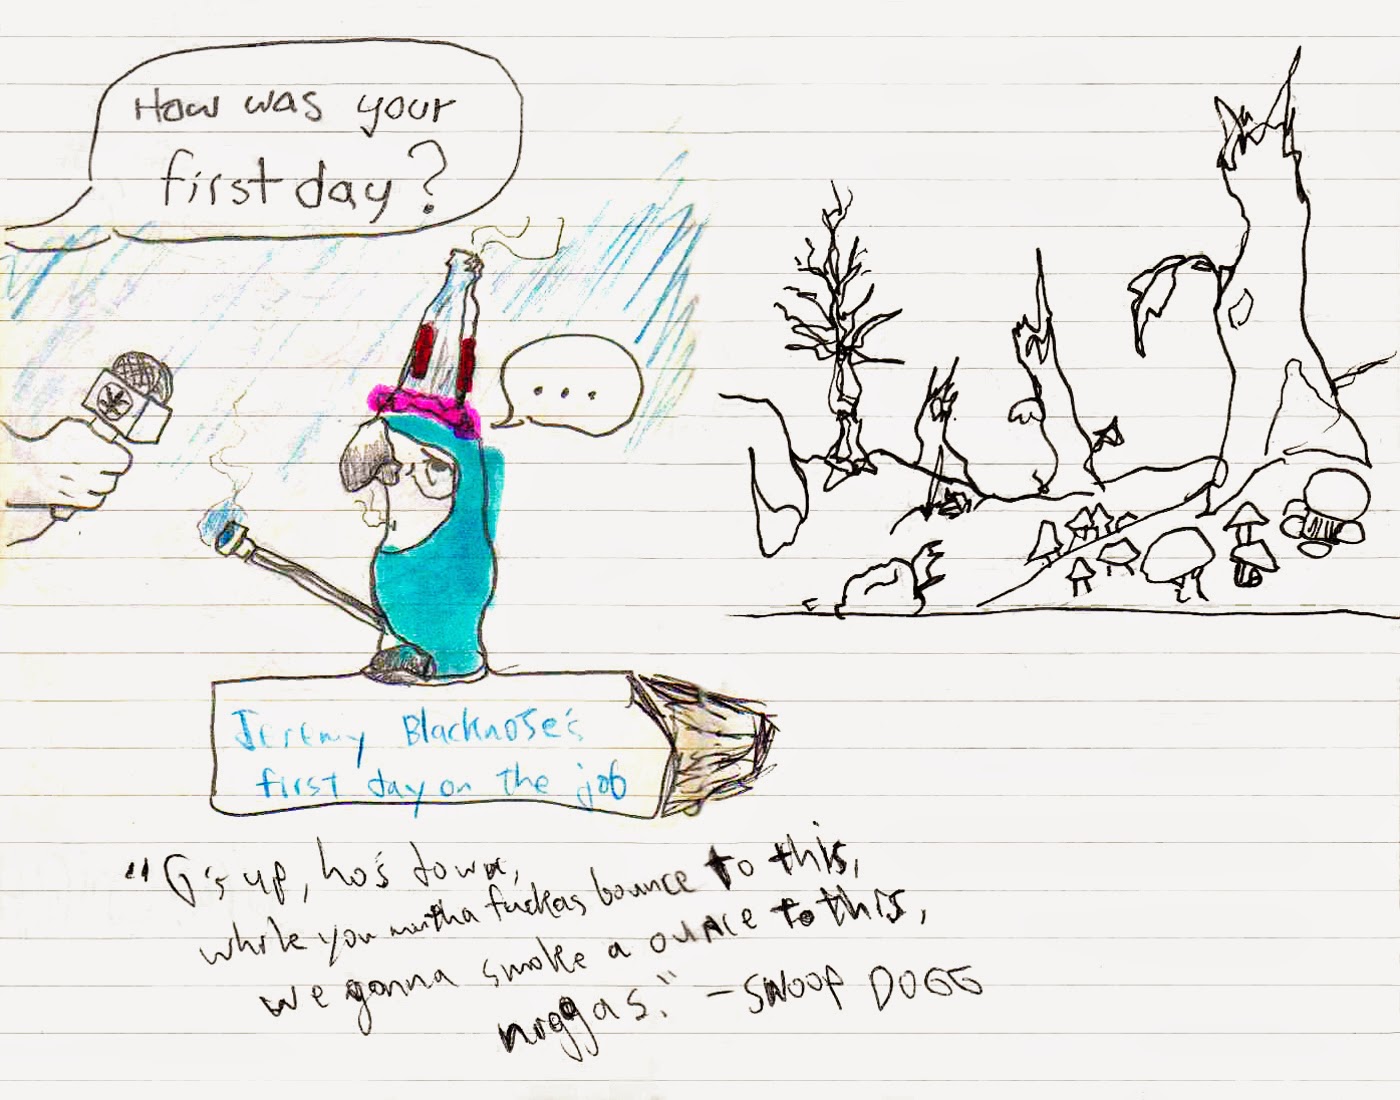 How was your
first day?
...
Jeremy Blacknose's
first day on the job
"G's up, ho's down,
while you mutha fuckas bounce to this,
we gonna smoke a ounce to this,
niggas." - SNOOP DOGG